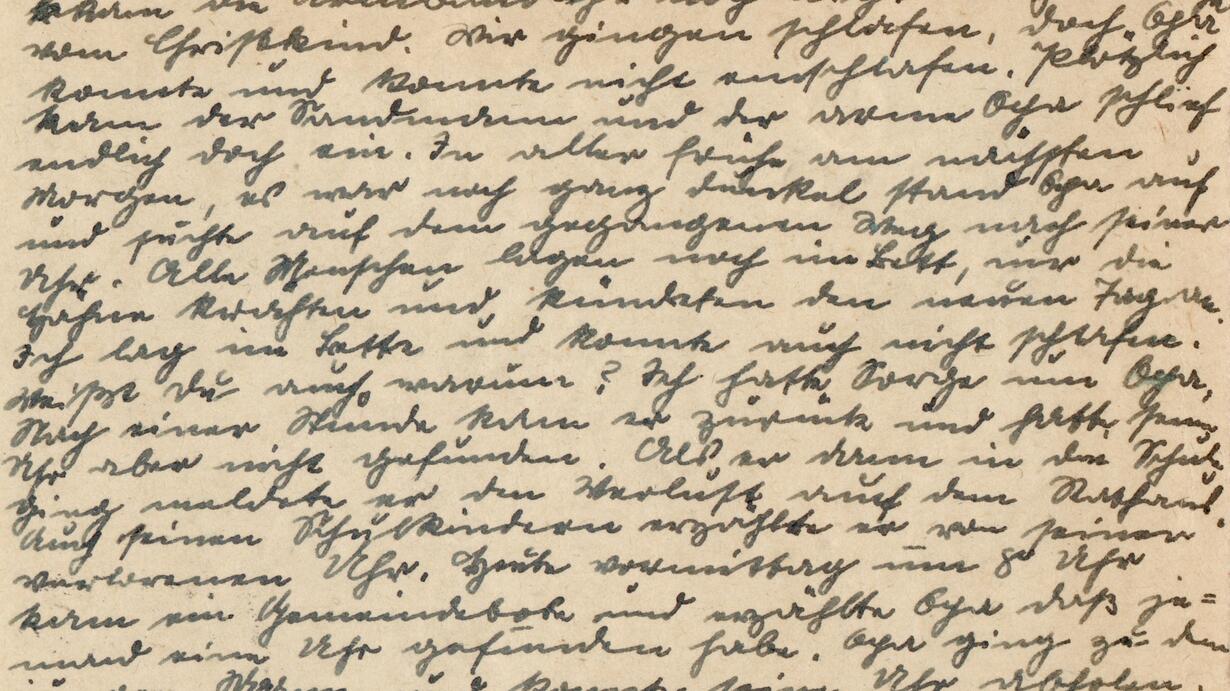 kam die Armbanduhr
vom Christkind. Wir gingen schlafen, doch Opa
konnte und konnte nicht einschlafen. Plötzlich
kam der Sandmann und der arme Opa schlief
endlich doch ein. In aller frühe am nächsten
Morgen, es war noch ganz dunkel stand Opa auf
und suchte auf dem gegangenen Weg nach seiner
Uhr. Alle Menschen lagen noch im Bett, nur die
Hähne krähten und kündeten den neuen Tag an.
Ich lag im Bette und konnte auch nicht schlafen.
Weißt Du auch warum? Ich hatte Sorge um Opa,
Nach einer Stunde kam er zurück und hatte seine
Uhr aber nicht gefunden. Als er dann in die Schule
ging meldete er den Verlust auch dem Rathaus.
Auch seinen Schulkindern erzählte er von seiner
verlorenen Uhr. Heute vormittag um 8 Uhr
kam ein Gemeindebote und erzählte Opa daß je=
mand eine Uhr gefunden habe. Opa ging zu dem
Uhr abholen.